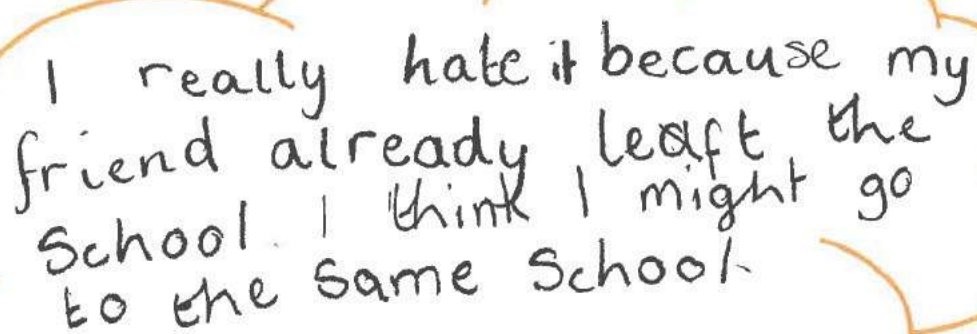 I really hate it because my
friend already leaft the
School. I think I might go
to the same School.